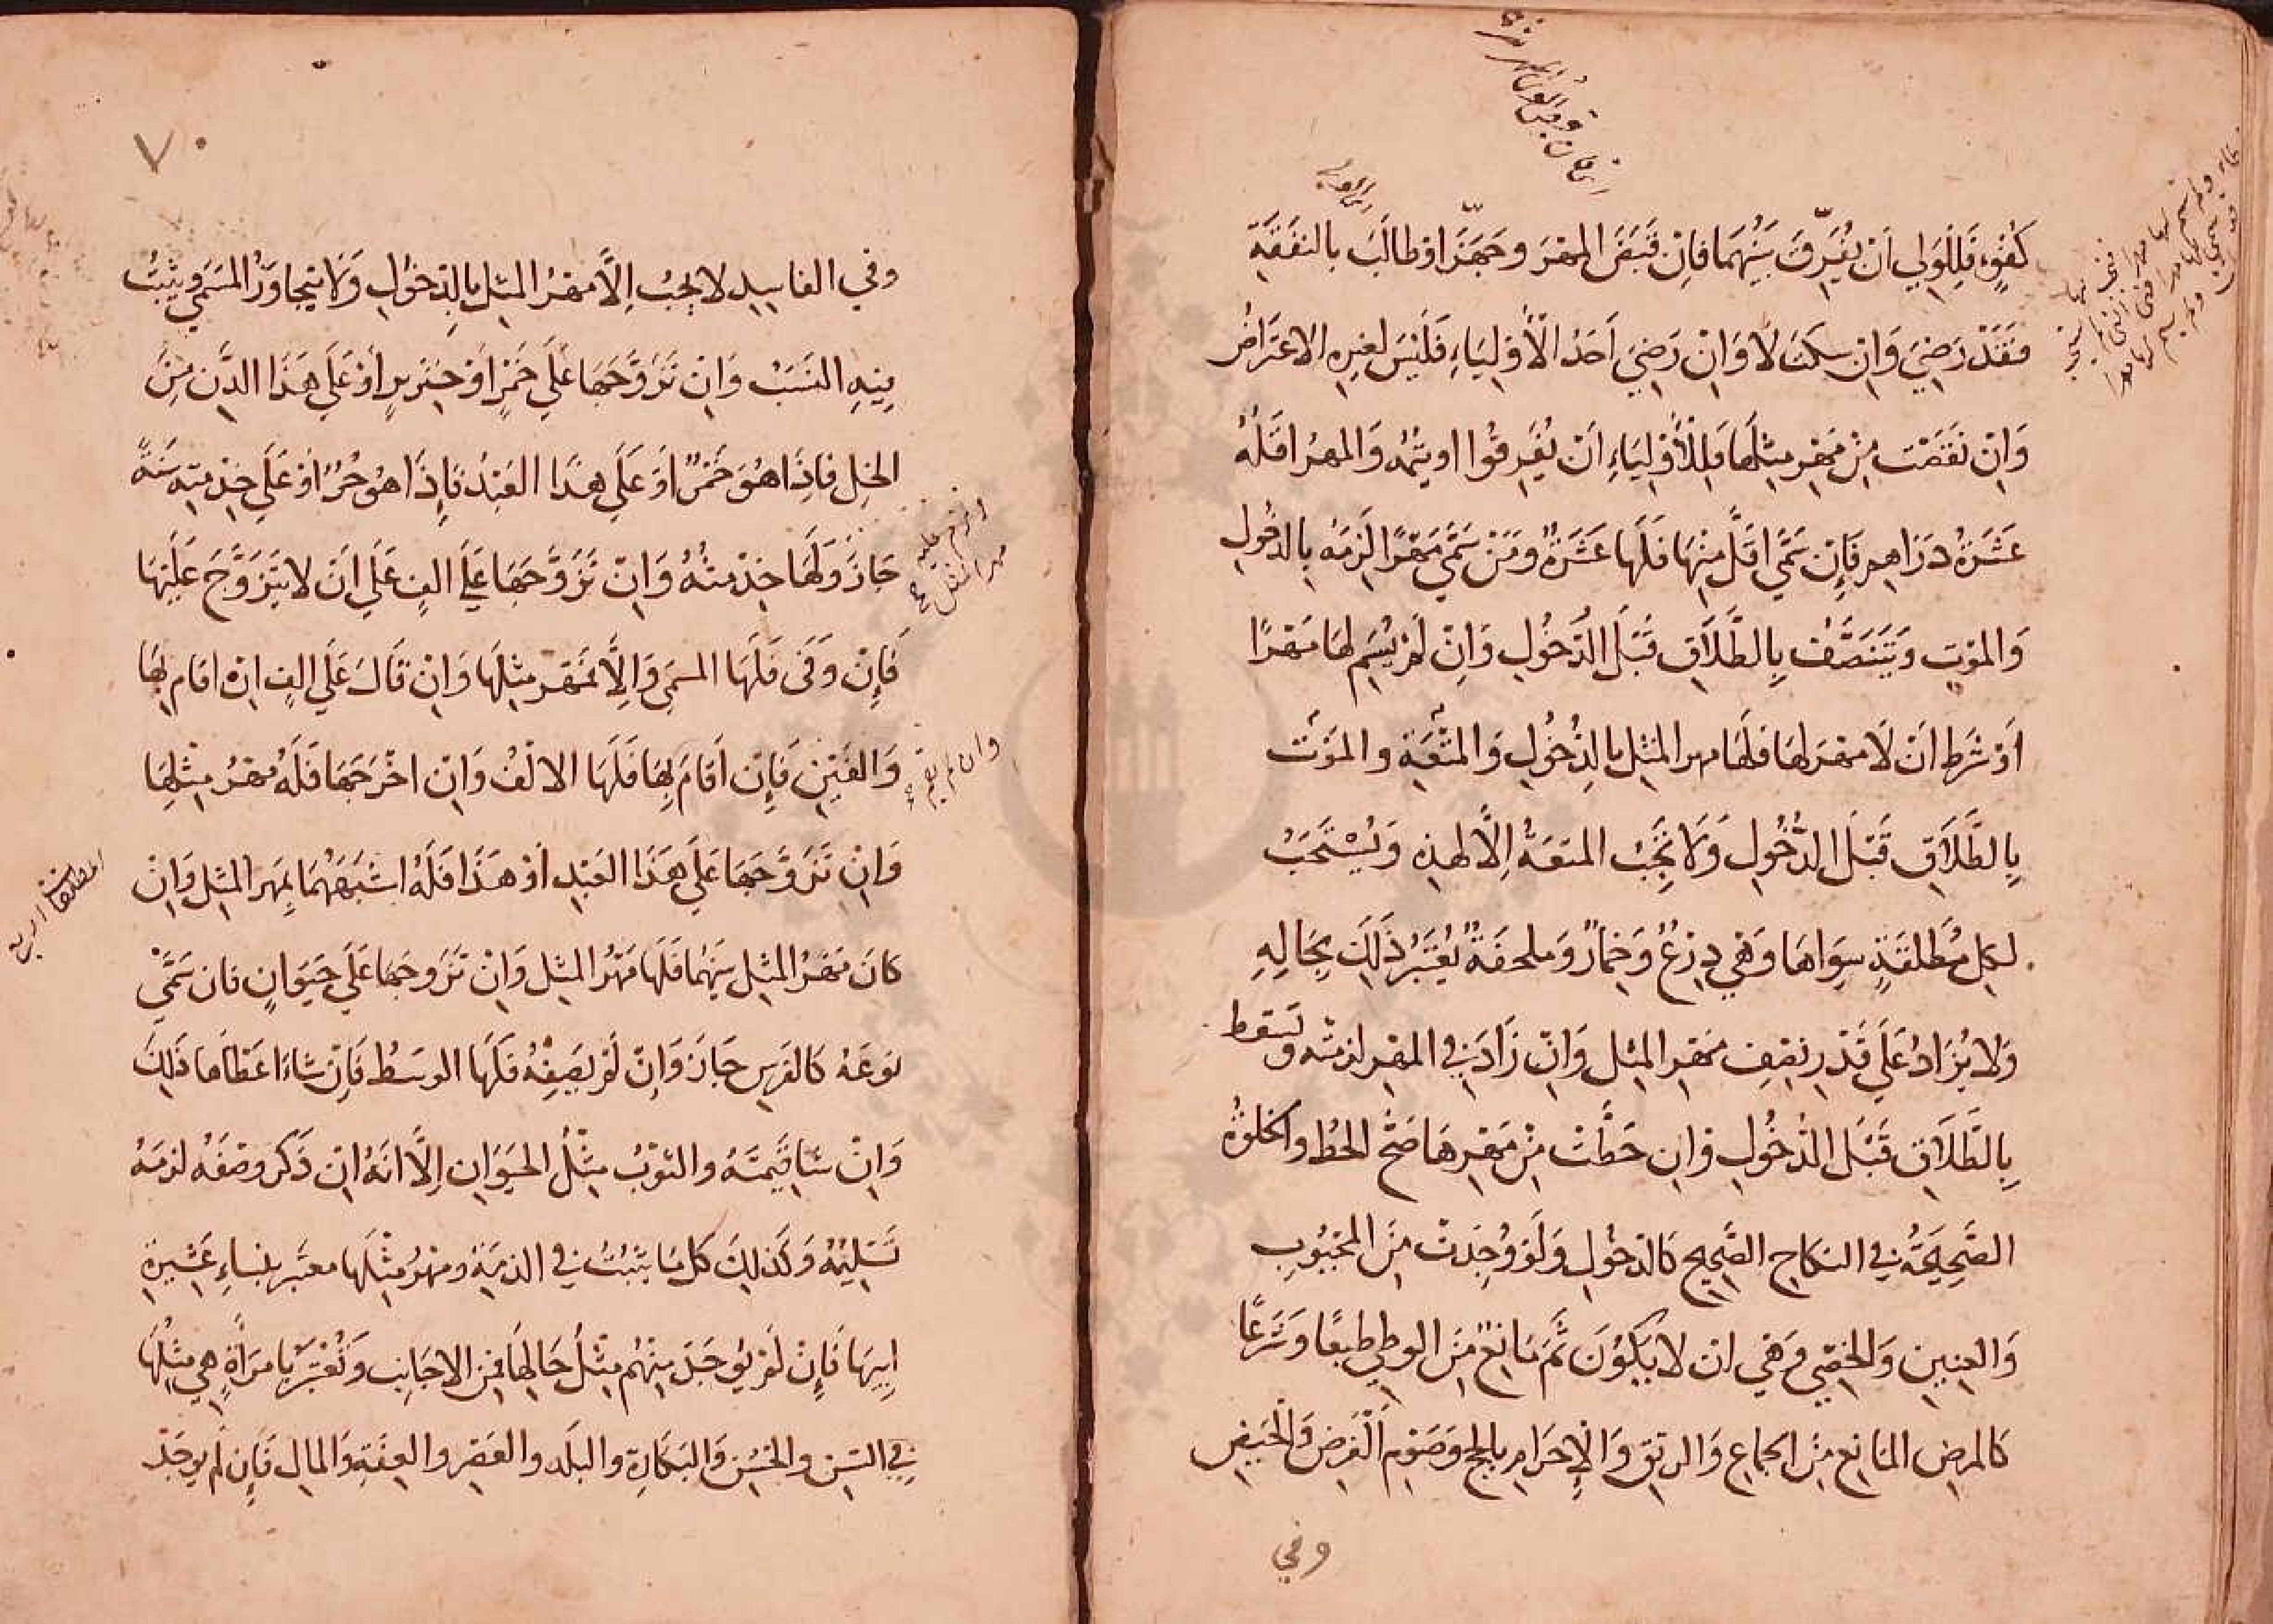 كُفُوٍء فَلِلْوَلِي اَنْ يُفَرِّقَ بَيْنَهُمَا فَاِنْ قَبَضَ المهْرَ وجَهَّزَ اوْ طالَبَ بالنفَقَةِ
فَقَدْ رَضِيَ وَاِنْ سكَتَ لَا وَاِنْ رَضِيَ اَحَدُ الْاَوْلِيَاءِ فَلَيْسَ لغيرِهِ الاعتَرَاضُ
وَاِنْ نَقَصَتْ مِنْ مَهْرِ مِثلِهَا فَلِلْاَوْلِيَاءِ اَنْ يُفَرِقُوا او يتمهُ وَالمهرُ اقَلهُ
عَشَرَةُ دَرَاهِم فَاِنْ سَمَّى اقَلَّ مِنْهَا فَلَهَا عَشَرَةٌ ومَنْ سَمَّى مَهْرًا لَزِمَهُ بِالدخُولِ
وَالموْتِ وَيَتَنَصَّفُ بِالطَّلَاقِ قَبْلَ الدّخُولِ وَاِنْ لَمْ يُسَمِ لهَا مَهْرًا
اَوْ شَرَط اَنْ لَا مهْرَ لهَا فلَهَا مهر المثِلِ بالدِخُولِ وَالمتْعَةِ والموْتُ
بِالطَّلَاقِ قَبْلَ الدُّخُولِ وَلَا تَجِبُ المتعَةُ اِلَّا لهذِهِ وَيُسْتَحَبُ
لكِلِ مُطَلقَةٍ سِوَاهَا وَهْيَ دِرْعٌ وَخِمَارٌ وَملحفَةٌ يُعْتَبَرُ ذَلِكَ بِحَالِهِ
وَلا يُزَادُ عَلَى قَدْرِ نِصْفِ مَهْرِ المِثلِ وَاِنْ زَادَ فِي المهْرِ لزمَتْه وتسقط
بِالطَّلَاقِ قَبْلَ الدُخُولِ وَاِن حَطَّتْ مِنْ مَهْرِهَا صَحَّ الحطُ والخلوَةُ
الصَّحِيحَةُ فِي النكَاحِ الصَّحِيحِ كَالدخوُلِ وَلَوْ وُجِدَتْ مِنَ المَجْبُوبِ
وَالعِنِينِ وَالخَصِي وَهْيَ ان لا يَكُوُنَ ثَمَّ مَانِعٌ مِنَ الوطِي طبعًا وَشَرْعًا
كَالمرضِ المَانِع مِنَ الجمَاعِ وَالرتَقِ وَالْاِحْرَامِ بالحجِ وَصَوْمِ الْفَرضِ وَالْحَيضِ
وفي
٧٠
وفي الفاسِدِ لا يَجِبُ اِلَّا مَهْرُ المثلِ بالدِخُولِ وَلَا يتجاوَزُ المسَمى ويثبُتُ
فِيهِ النسَبُ وَاِنْ تَزَوَّجَهَا عَلَى خَمْرٍ اَوْ خنزيرٍ اَوْ عَلَى هَذَا الدَّنِ مِنَ
الخلِ فَاِذَا هُوَ خَمْرٌ اَوْ عَلَى هذَا العَبْدِ فَاِذَا هُوَ حُرٌ اَوْ عَلَى خِدْمتِهِ سَنَةً
جَازَ وَلَهَا خِدْمتُهُ وَاِنْ تَزَوَّجَهَا عَلَى الفٍ عَلَى اَنْ لا يَتَزَوَّجَ عَلَيْهَا
فَاِنْ وَفَى فَلَهَا المسمَى وَاِلَّا فَمَهْر مِثْلِهَا وَاِنْ قَالَ عَلَى الفٍ انْ اقام بِهَا
وَالفَيْنِ فَاِنْ اَقَامَ بِهَا فَلَهَا الالْفُ وَاِنْ اخْرَجَهَا فَلَهُ مَهْرُ مِثْلِهَا
وان لم يقم
وَاِنْ تَزَوَّجَهَا عَلَى هَذَا العَبْدِ اَوْ هَذَا فَلَهُ اشبَهَهُمَا بِمَهر المثِل وَاِنْ
كَانَ مَهْرُ المثِلِ بَيْنَهُمَا فَلَهَا مَهْرُ المثِل وَاِنْ تَزَوجَهَا عَلَى حَيَوَانٍ فان سَمَّى
نوعَهُ كَالفَرَسِ جَازَ وَاِنْ لَمْ يَصِفْهُ فَلَهَا الوسَطُ فَاِنْ شَاءَ اعْطَاهَا ذَلِكَ
وَاِنْ شا قيمَتَهُ والثوْبُ مِثْلُ الحيَوَانِ اِلَّا انَهُ اِنْ ذَكَر وصْفَهُ لزمَهُ
تَسْلِيمُهُ وَكَذلِكَ كل مَا يَثبُتُ فِي الذمَةِ ومهْرُ مِثْلهَا معتَبر بنسَاءِ عَشِيرَةِ
ابِيهَا فَاِنْ لَمْ يُوجَدْ مِنْهُمْ مِثْلُ حَالِهَا فَمِنَ الاجَانِبِ وَتُعْتَبَرُ بِامرَاَةٍ هي مِثلُهَا
فِي السّنِ والحُسْنِ وَالبَكَارَةِ والبلَد والعَصْرِ والعِفَةِ وَالمالِ فَاِن لَم يوجَدْ